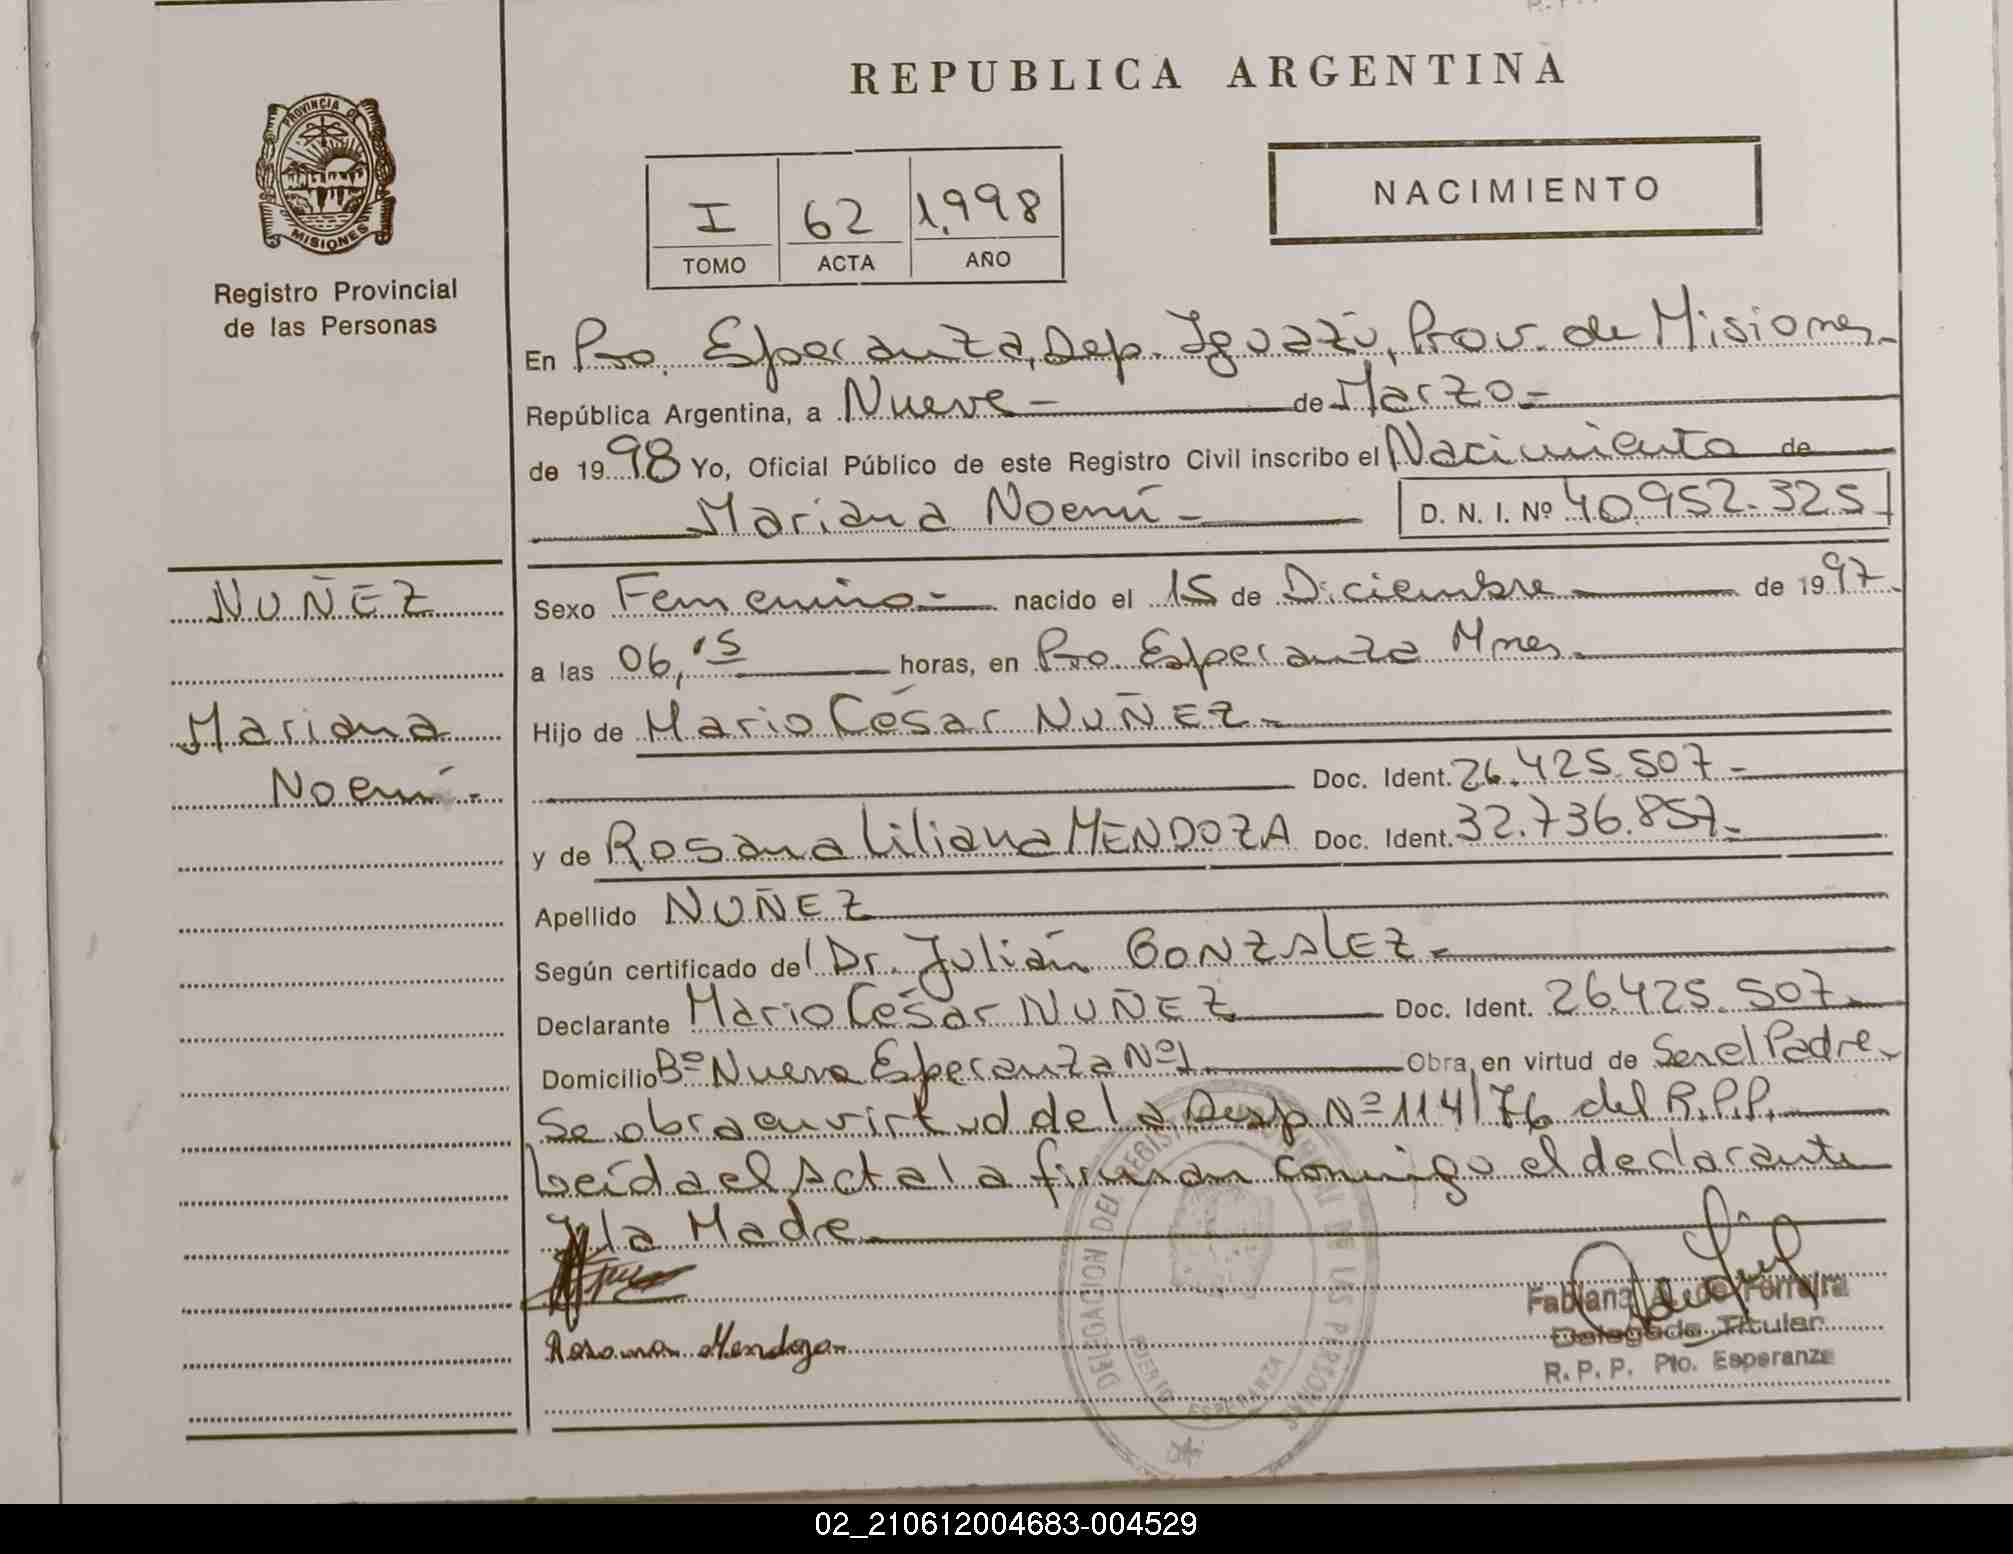 REPUBLICA ARGENTINA
PROVINCIA DE
MISIONES
Registro Provincial
de las Personas
I 62 1.998
TOMO ACTA AÑO
NACIMIENTO
En Pto. Esperanza, Dep. Iguazú, Prov. de Misiones.-
República Argentina, a Nueve - de Marzo.-
de 1998 Yo, Oficial Público de este Registro Civil inscribo el Nacimiento de
Mariana Noemí - D. N. I. Nº 40.952.325
NUÑEZ
Mariana
Noemí.-
Sexo Femenino.- nacido el 15 de Diciembre de 1997.
a las 06,15 horas, en Pto. Esperanza Mnes.
Hijo de Mario César NUÑEZ.-
Doc. Ident. 26.425.507.-
y de Rosana Liliana MENDOZA Doc. Ident. 32.736.857.-
Apellido NUÑEZ
Según certificado del Dr. Julián GONZALEZ.-
Declarante Mario César NUÑEZ Doc. Ident. 26.425.507.
Domicilio Bº Nueva Esperanza Nº1. Obra en virtud de Ser el Padre.
Se obra en virtud de la Disp Nº 114/76 del R.P.P.
Leída el Acta la firman conmigo el declarante
y la Madre.
Rosana Mendoza
Delegado Titular
R. P. P. Pto. Esperanza
DELEGACION DEL REGISTRO PROVINCIAL DE LAS PERSONAS
PUERTO ESPERANZA
02_210612004683-004529